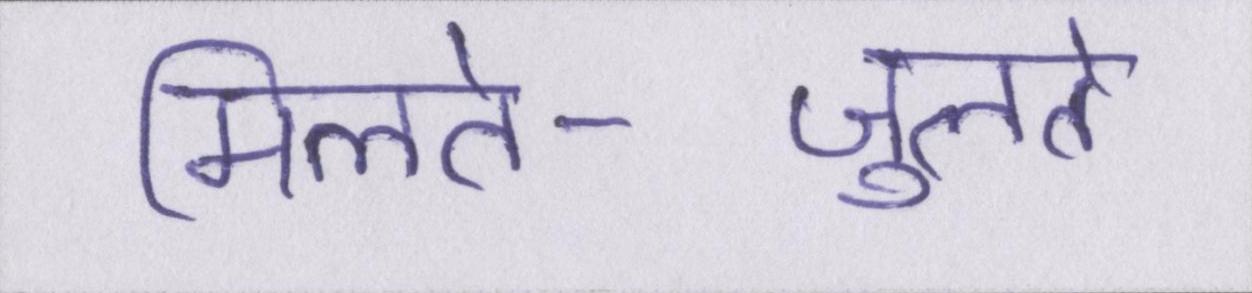 मिलते- जुलते